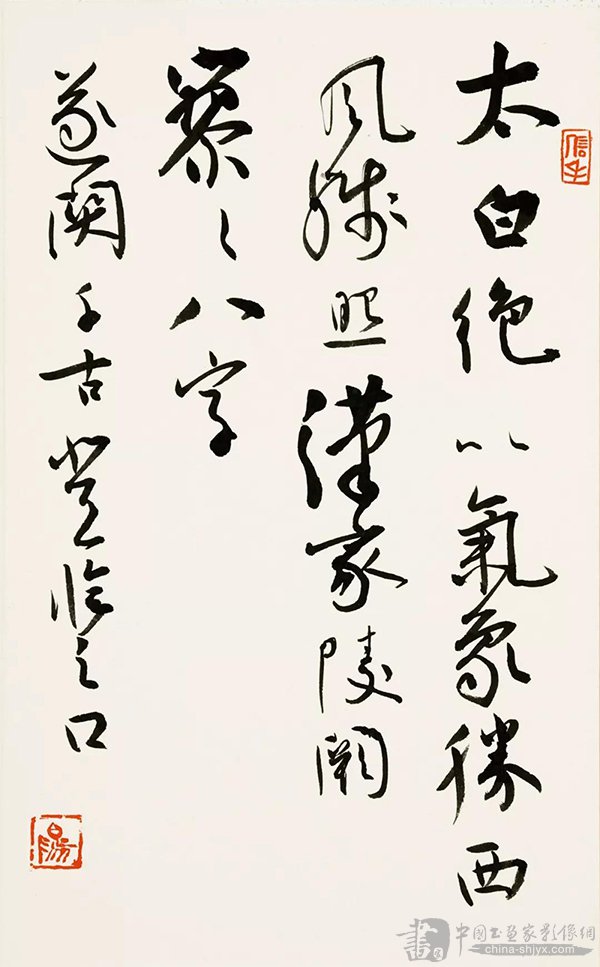 太白純以氣象勝西
風殘照漢家陵闕
寥々八字
遂關千古登臨之口
信手
中国书画家影像網
china-shjyx.com